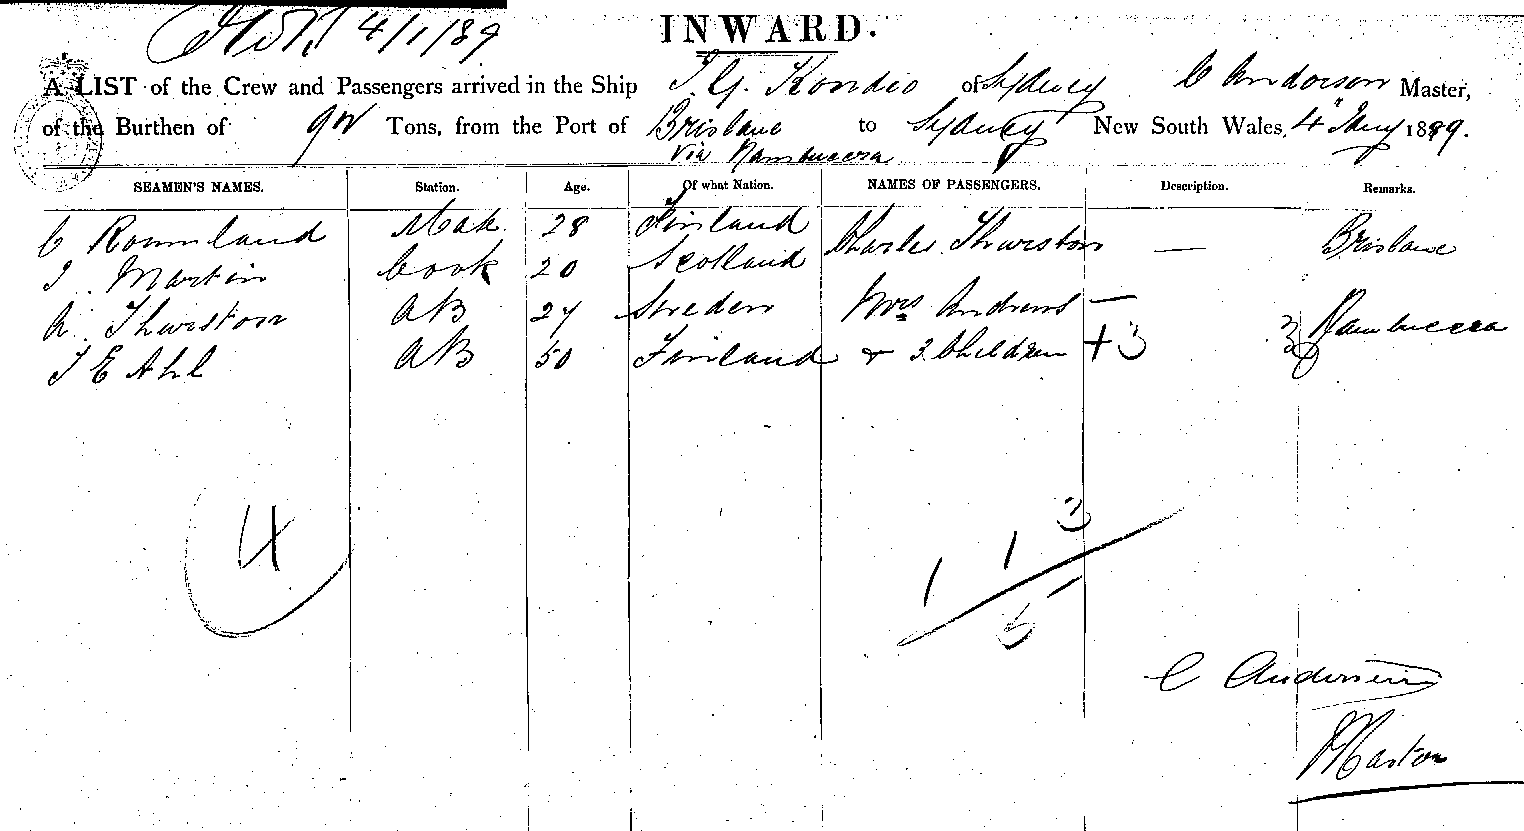 4/1/89
INWARD.
A LIST of the Crew and Passengers arrived in the Ship of Sydney C Anderson Master,
of the Burthen of Tons, from the Port of Brisbane to Sydney New South Wales, 4" Jany 1889.
via Nambucca
SEAMEN'S NAMES. Station. Age. Of what Nation. NAMES OF PASSENGERS. Description. Remarks.
C Mate 28 Finland Charles Thurston — Brisbane
J Martin Cook 20 Scotland
A Thurston AB 27 Sweden Mrs Andrews — Nambucca
J E Ahl AB 50 Finland & 3 Children + 3
4
1 1 3
5
C Anderson
Master